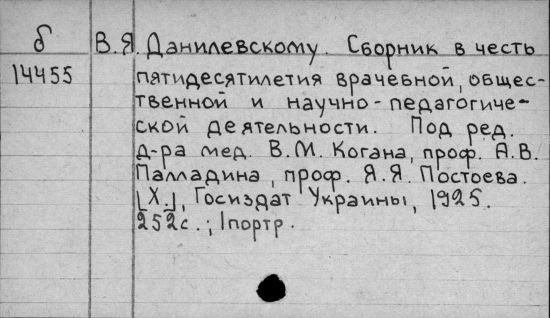 б В.Я. Данилевскому. Сборник в честь
14455 пятидесятилетия врачебной, общес-
твенной и научно-педагогиче-
ской деятельности. Под ред.
д-ра мед. В.М. Когана, проф. А.В.
Палладина, проф. Я.Я. Постоева.
[Х.], Госиздат Украины, 1925.
252с.; 1портр.